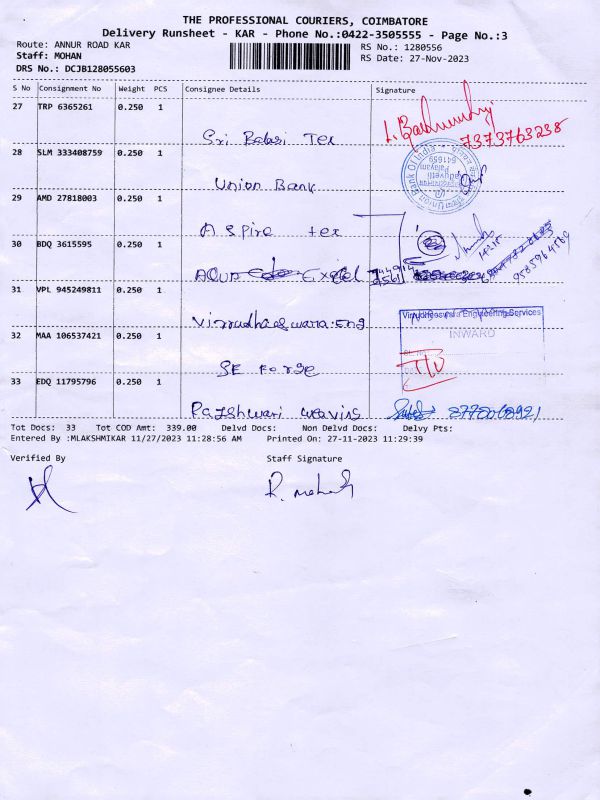 THE PROFESSIONAL COURIERS, COIMBATORE
Delivery Runsheet - KAR - Phone No.:0422-3505555 - Page No.:3
Route: ANNUR ROAD KAR
RS No.: 1280556
Staff: MOHAN
RS Date: 27-Nov-2023
DRS No.: DCJB128055603
S No Consignment No Weight PCS Consignee Details Signature
27 TRP 6365261 0.250 1
Sri Balaji Tex
7373763238
28 SLM 333408759 0.250 1
Union Bank
Union Bank Of India
641659
29 AMD 27818003 0.250 1
Aspire tex
30 BDQ 3615595 0.250 1
AQUA Excel
9585964560
31 VPL 945249811 0.250 1
Virudhaeswara.eng
Engineering Services
INWARD
32 MAA 106537421 0.250 1
SE Forge
33 EDQ 11795796 0.250 1
Rajeshwari weaving
Tot Docs: 33 Tot COD Amt: 339.00 Delvd Docs: Non Delvd Docs: Delvy Pts:
Entered By :MLAKSHMIKAR 11/27/2023 11:28:56 AM Printed On: 27-11-2023 11:29:39
Verified By Staff Signature